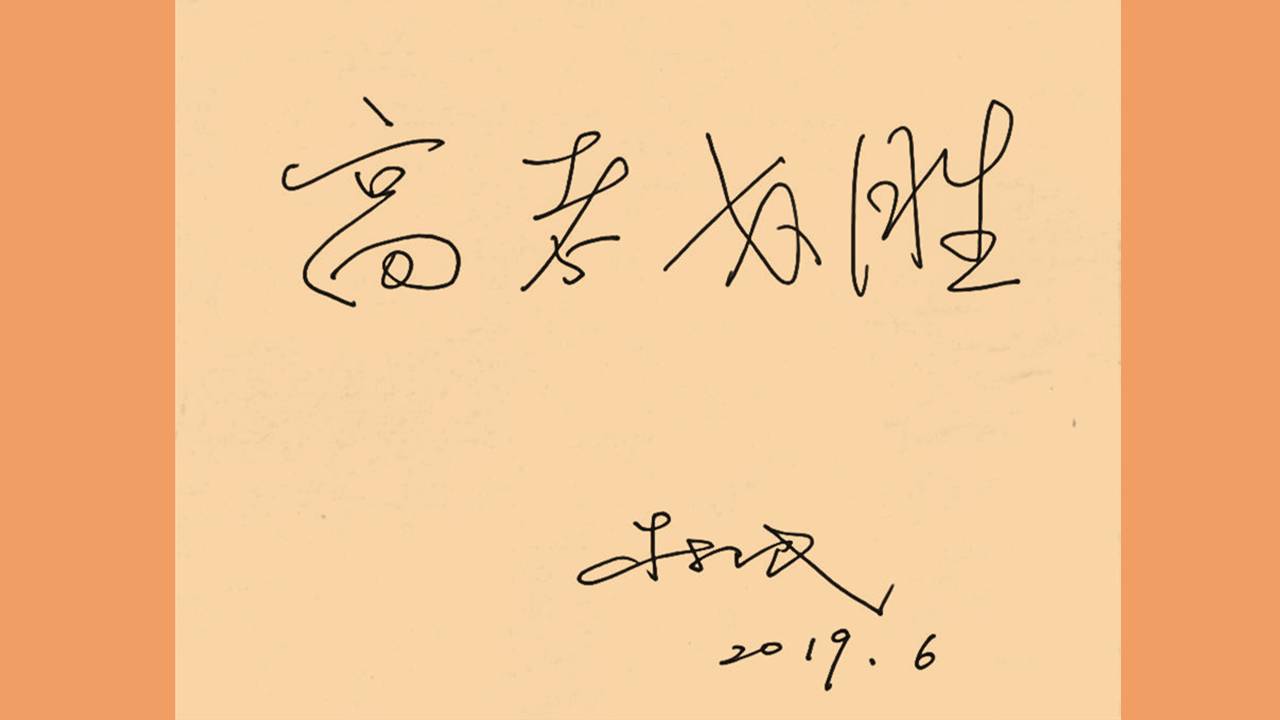 高考必胜
2019.6